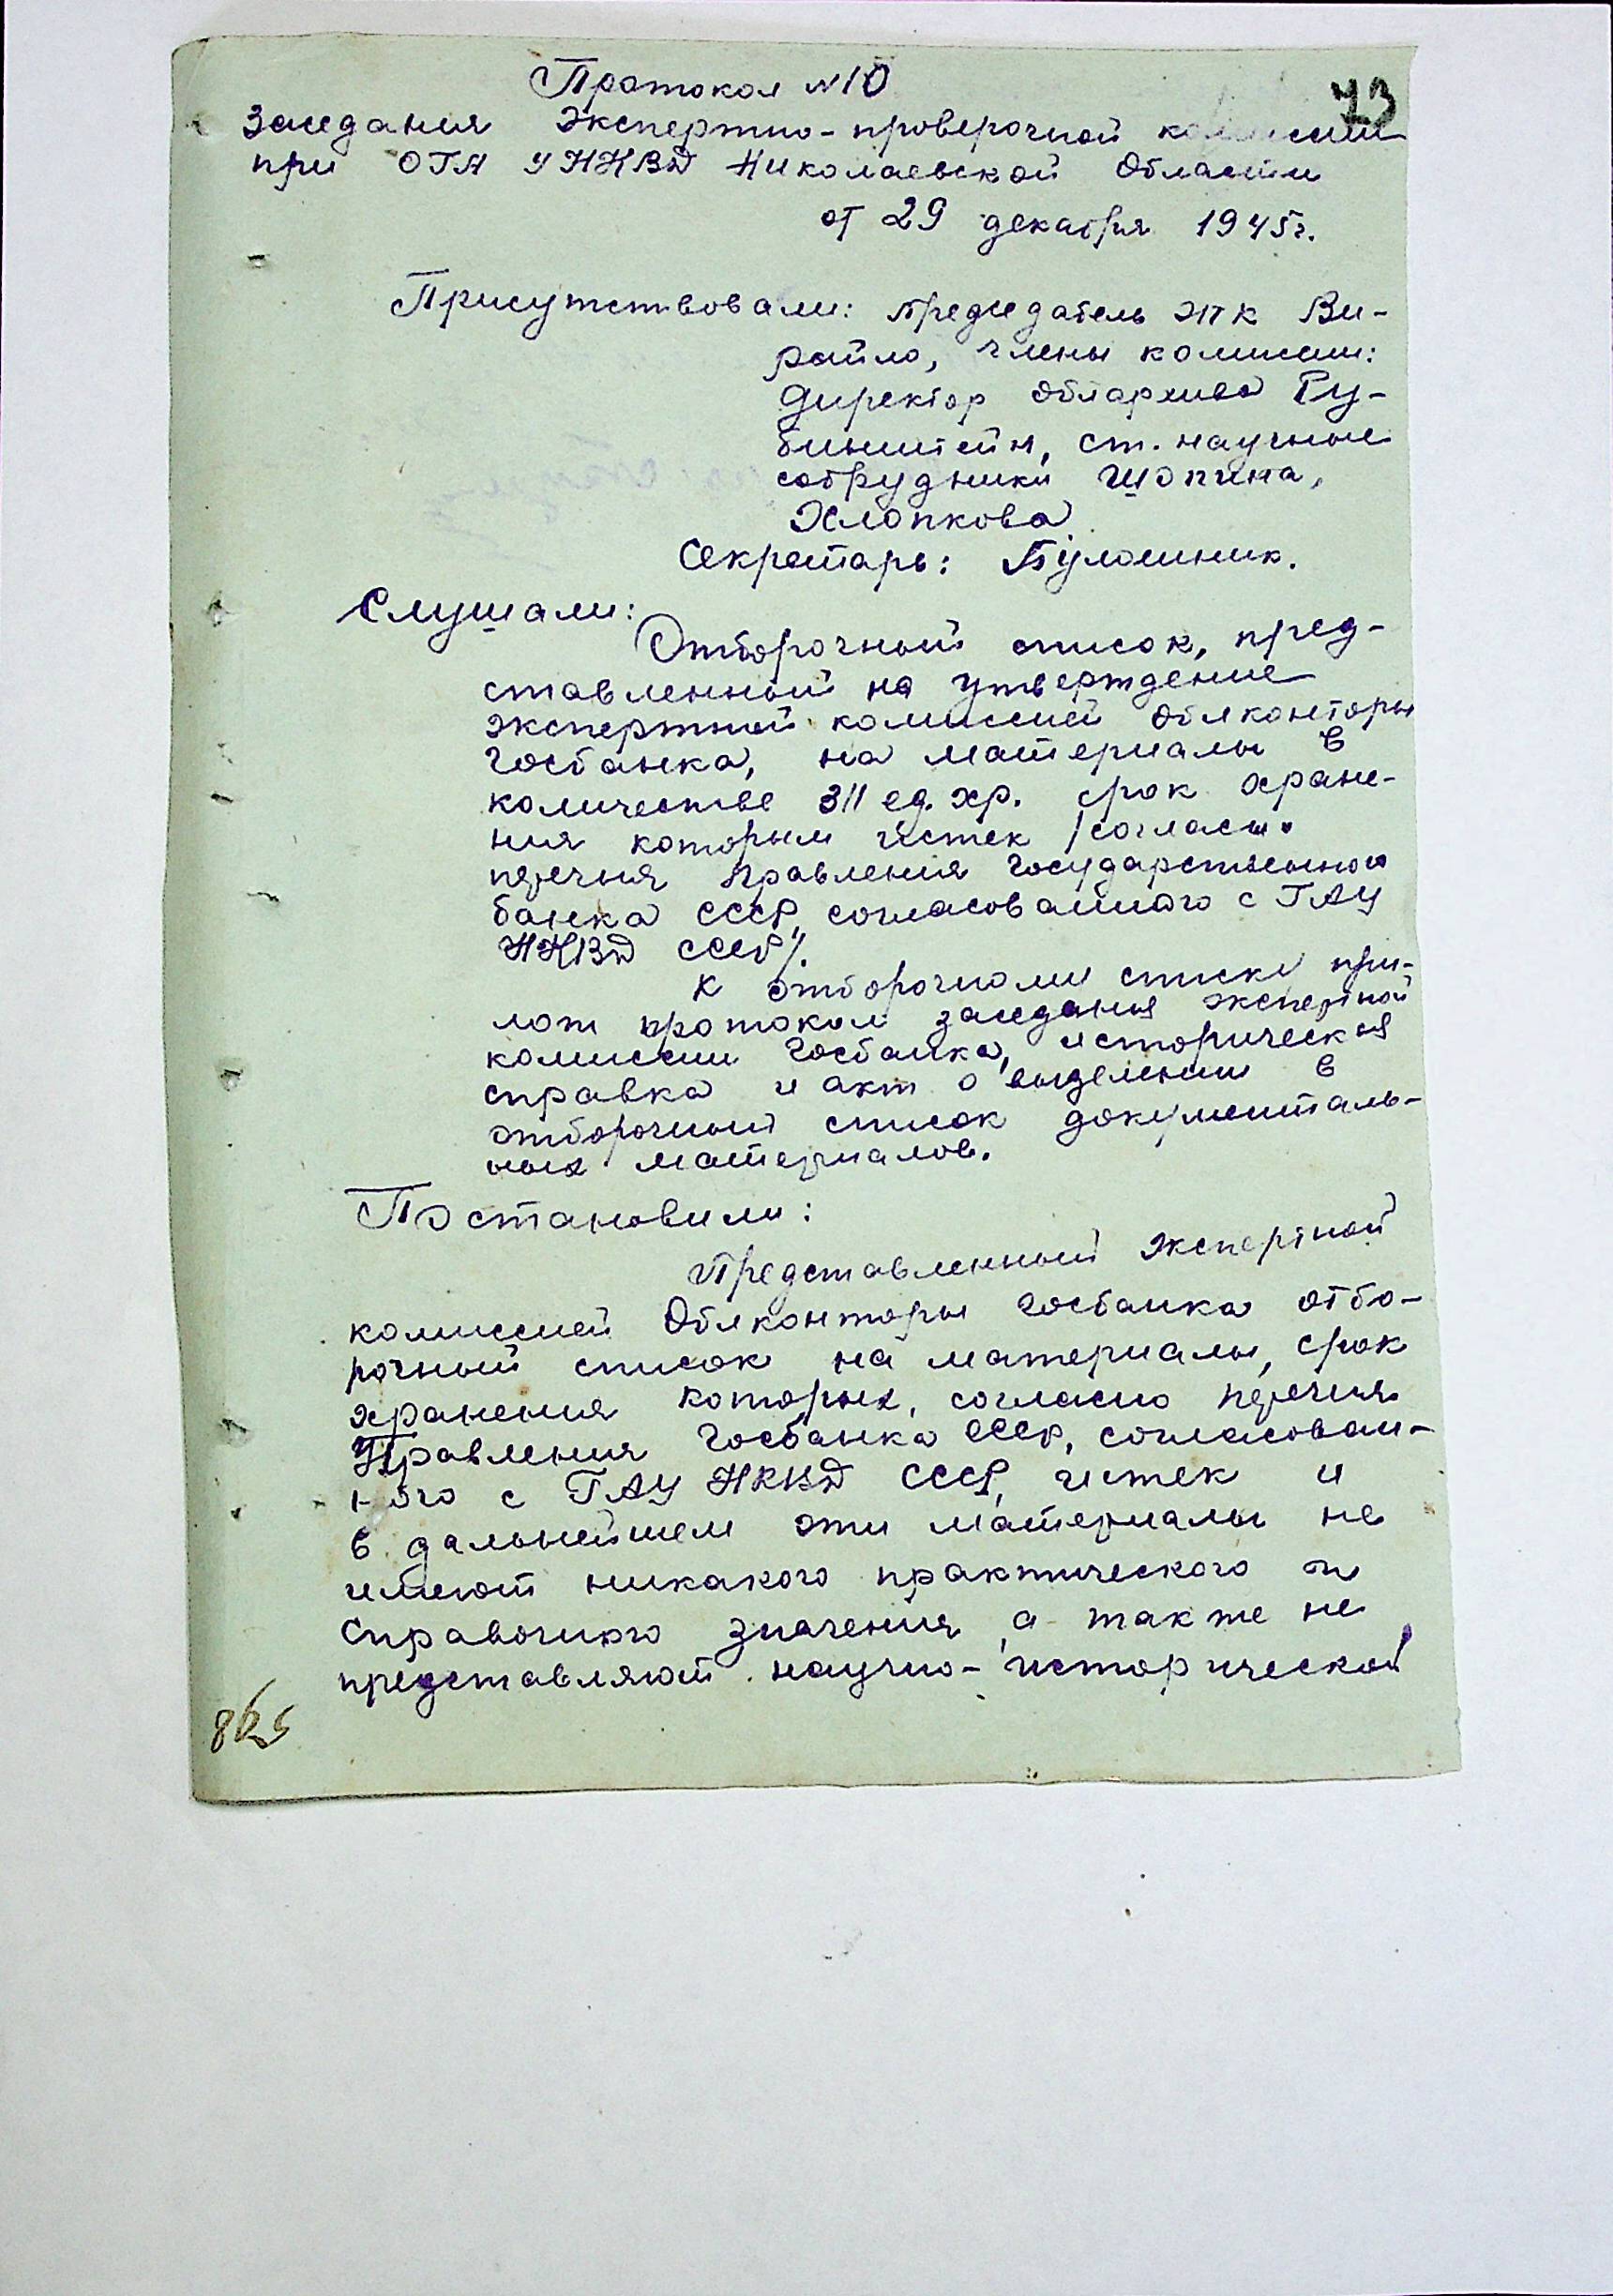 Протокол №10
73
Заседания Экспертно-проверочной комиссии
при ОГА УНКВД Николаевской Области
от 29 декабря 1945г.
Присутствовали: председатель ЭПК Ви-
райло, члены комиссии:
Директор Облархива Ру-
бинштейн, ст. научные
сотрудники Шопина,
Хлопкова
Секретарь: Пуломник.
Слушали:
Отборочный список, пред-
ставленный на утверждение
экспертной комиссией Облконторы
Госбанка, на материалы в
количестве 311 ед. хр. срок хране-
ния которым истек /согласно
перечня Правления Государственного
банка СССР, согласованного с ГАУ
НКВД СССР/.
К отборочному списку при-
лож протокол заседания экспертной
комиссии Госбанка, историческая
справка и акт о выделении в
отборочный список документаль-
ных материалов.
Постановили:
Представленный экспертной
комиссией Облконторы Госбанка отбо-
рочный список на материалы, срок
хранения которых, согласно перечня
Правления Госбанка СССР, согласован-
ного с ГАУ НКВД СССР, истек и
в дальнейшем эти материалы не
имеют никакого практического и
справочного значения, а также не
представляют научно-исторической